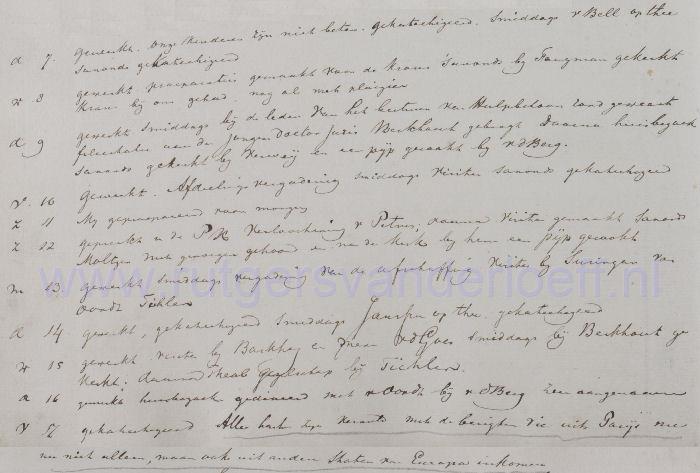 d 7. gewerkt. Onze kinderen zijn niet beter. gekatechiseerd. Smiddags v Bell op thee
savonds gekatechiseerd
w 8 gewerkt praeparatie gemaakt voor de Krans savonds by Tangman gekerkt
Krans bij ons gehad. nog al met pleizier
d 9 gewerkt smiddags bij de leden van het bestuur van Hulpbetoon rond geweest
felicitatie aan de jonge Doctor juris Berkhout gebragt Daarna huisbezoek
savonds gekerkt by Verweij en een pijp gerookt by vdBerg.
v. 10 Gewerkt. Afdeelingsvergadering smiddags visites savonds gekatechiseerd
z 11 My geprepareerd voor morgen
z 12 gepreekt in de P K Verloochening v Petrus, daarna visites gemaakt Savonds
Moltzer met genoegen gehoord en na de Kerk by hem een pijp gerookt
m 13. gewerkt smiddags vergadering van de afschaffing visites by Suringar van
Oordt Tichler
www.rutgersvanderloeff.nl
d 14 gewerkt, gekatechiseerd smiddags Janssen op thee. gekatechiseerd
w 15 gewerkt visite by Barkhey en Mevr vdGoes smiddags bij Berkhout ge
kerkt; daarna Theol Gezelschap bij Tichler.
d 16 gewerkt huisbezoek gedineerd met v Oordt bij v dBerg Zeer aangenaam
v 17 gekatechiseerd Alles las de kranten met de berigten die uit Parijs me
nu niet alleen, maar ook uit andere Staten van Europa inkomen